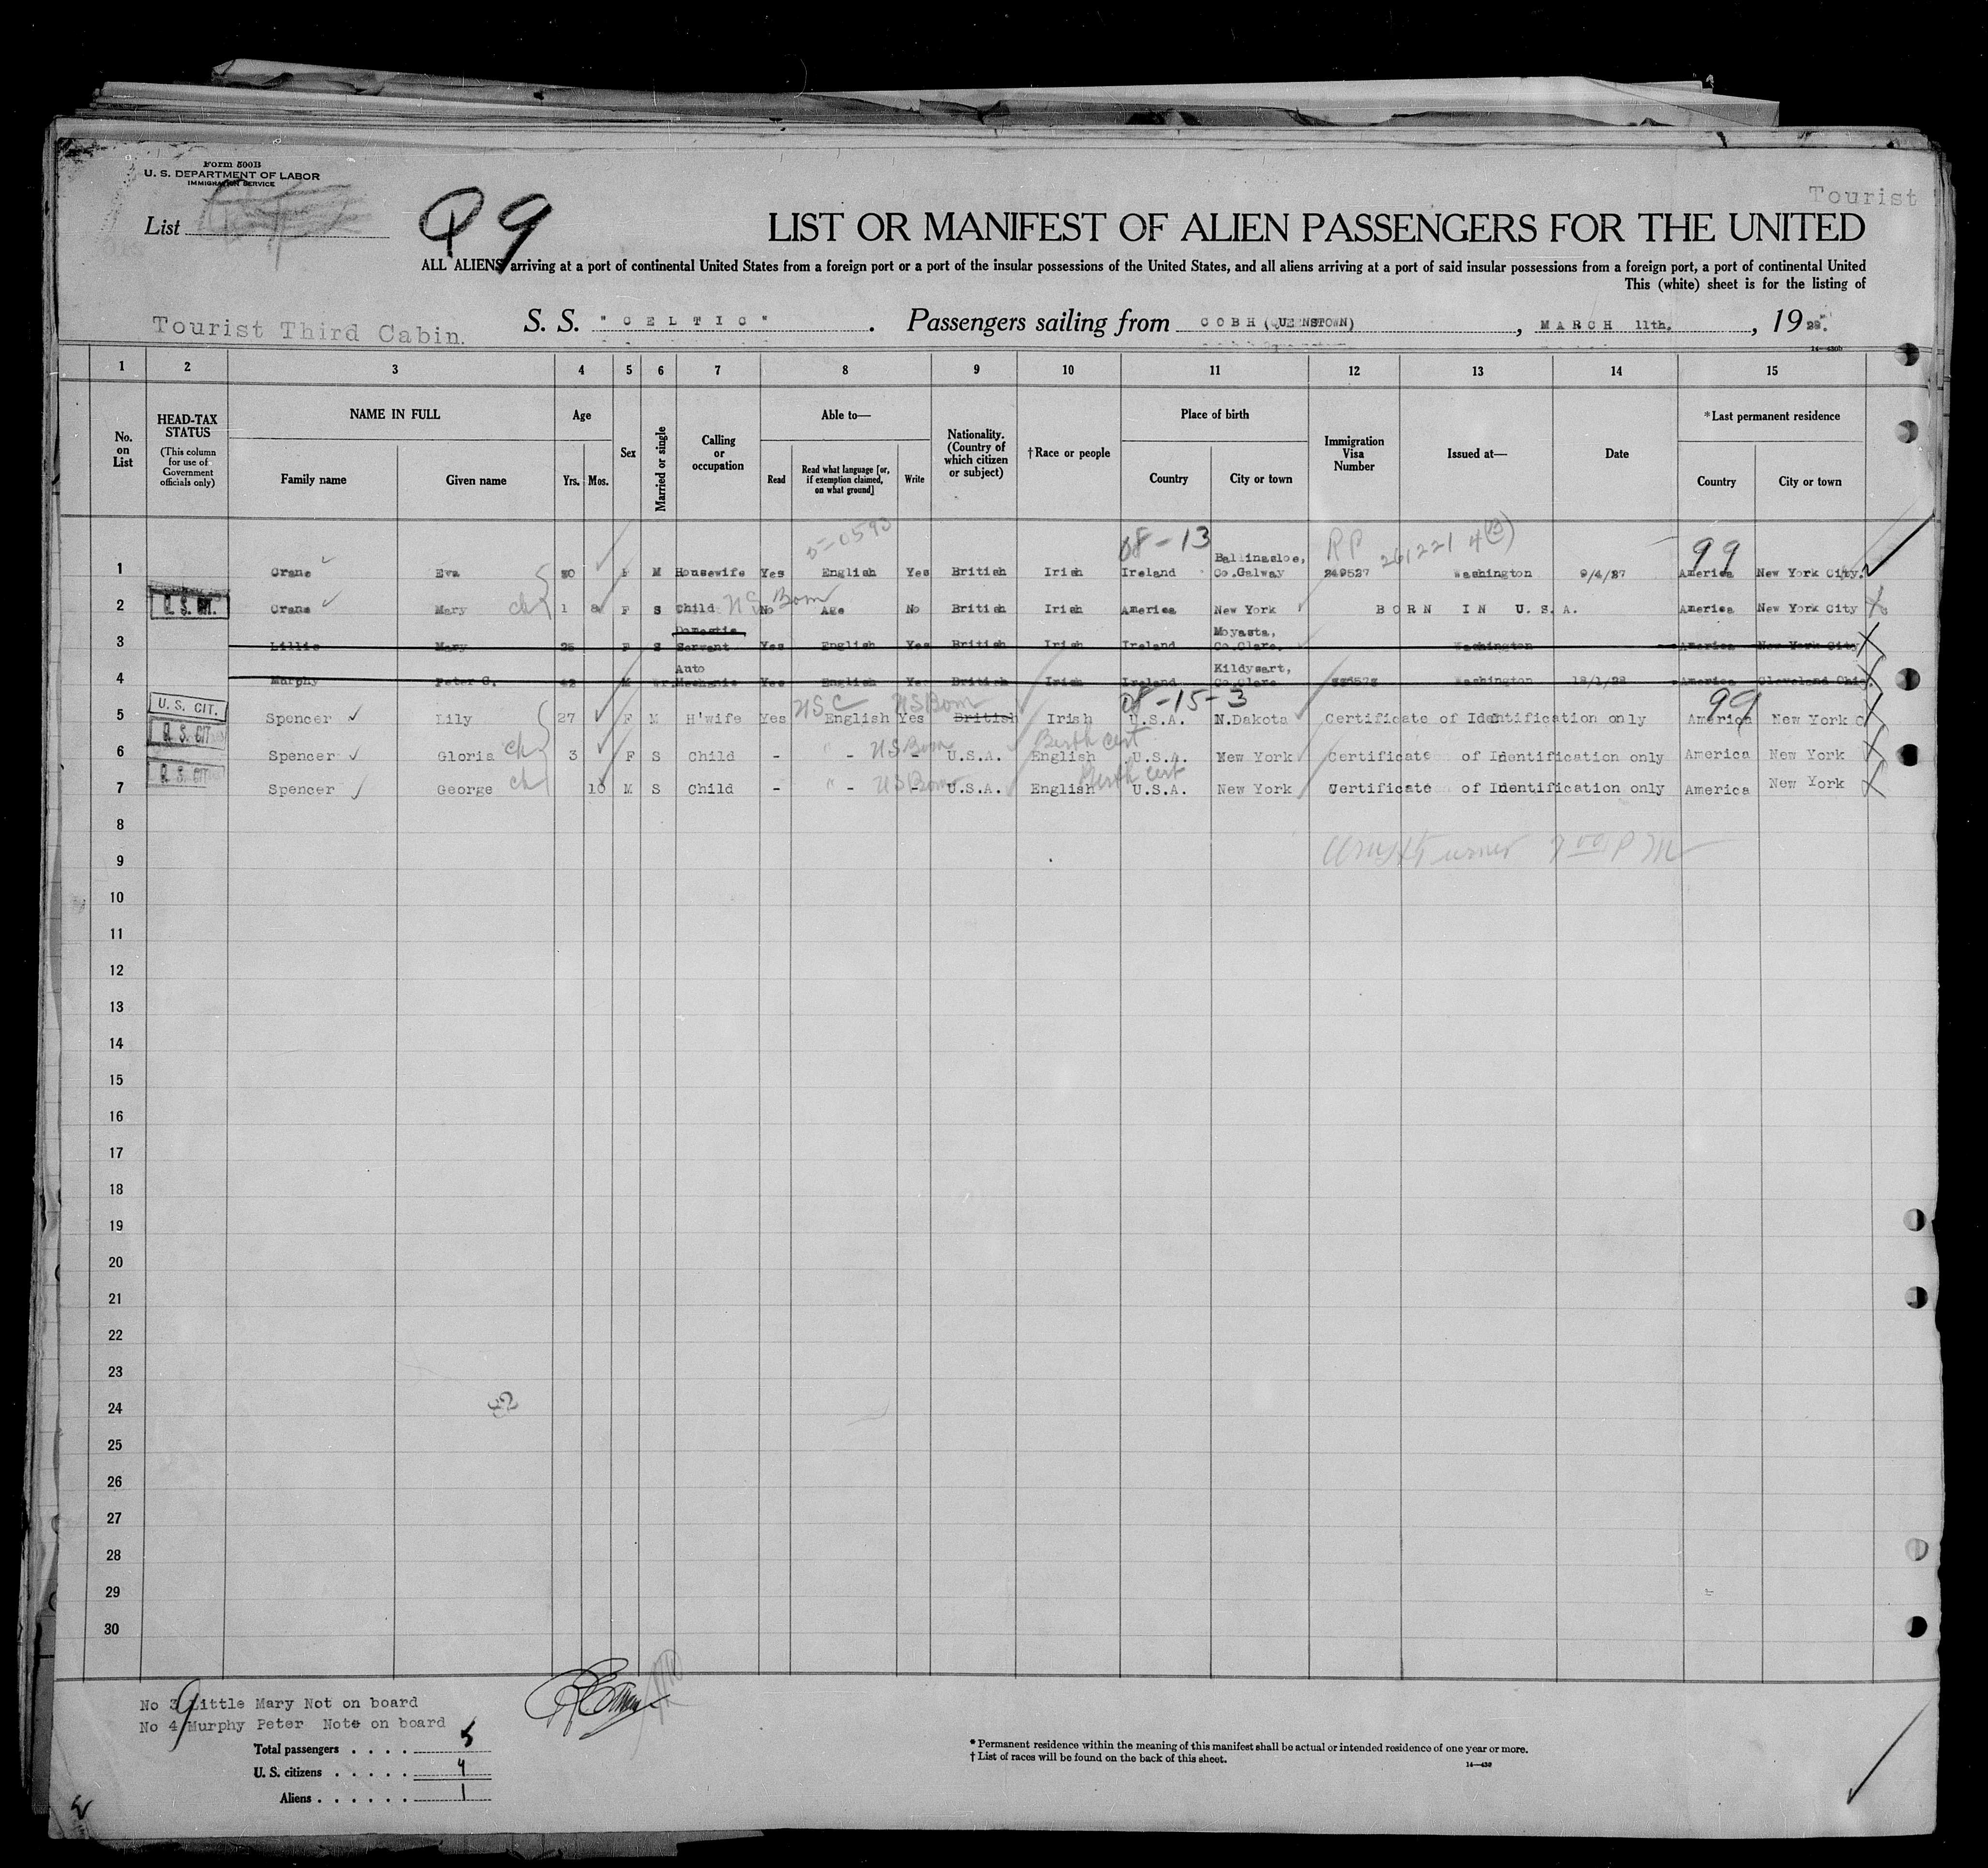 Form 500B
U. S. DEPARTMENT OF LABOR
IMMIGRATION SERVICE
Tourist
List
99
LIST OR MANIFEST OF ALIEN PASSENGERS FOR THE UNITED
ALL ALIENS arriving at a port of continental United States from a foreign port or a port of the insular possessions of the United States, and all aliens arriving at a port of said insular possessions from a foreign port, a port of continental United
This (white) sheet is for the listing of
Tourist Third Cabin. S. S. "CELTIC". Passengers sailing from COBH (QUEENSTOWN), MARCH 11th, 1928.
14—430b
1 2 3 4 5 6 7 8 9 10 11 12 13 14 15
No. on List
HEAD-TAX STATUS
(This column for use of Government officials only)
NAME IN FULL
Family name Given name
Age
Yrs. Mos.
Sex
Married or single
Calling or occupation
Able to—
Read Read what language [or, if exemption claimed, on what ground] Write
Nationality. (Country of which citizen or subject)
†Race or people
Place of birth
Country City or town
Immigration Visa Number
Issued at—
Date
*Last permanent residence
Country City or town
5-0593 08-13 RP 261221 99
1 Crane Eva 30 F M Housewife Yes English Yes British Irish Ireland Ballinasloe, Co.Galway 249527 Washington 9/4/27 America New York City.
2 U. S. CIT. Crane Mary ch 1 8 F S Child US Born No Age No British Irish America New York BORN IN U.S.A. America New York City
3 Lillis Mary 25 F S Domestic Servant Yes English Yes British Irish Ireland Moyasta, Co.Clare. Washington America New York City
4 Murphy Peter C. 42 M Wr. Auto Mechanic Yes English Yes British Irish Ireland Kildysart, Co.Clare Washington 12/1/28 America Cleveland Ohio.
USC US Born 08-15-3 99
5 U. S. CIT. Spencer Lily 27 F M H'wife Yes English Yes British Irish U.S.A. N.Dakota Certificate of Identification only America New York C
6 U. S. CIT Spencer Gloria ch 3 F S Child - " - US Born - U.S.A. English Birth cert U.S.A. New York Certificate of Identification only America New York
7 U. S. CIT Spencer George ch 10 M S Child - " - US Born - U.S.A. English Birth cert U.S.A. New York Certificate of Identification only America New York
8
9
10
11
12
13
14
15
16
17
18
19
20
21
22
23
24
25
26
27
28
29
30
No 3 Little Mary Not on board
No 4 Murphy Peter Note on board
Total passengers . . . . 5
U. S. citizens . . . . . 4
Aliens . . . . . . 1
* Permanent residence within the meaning of this manifest shall be actual or intended residence of one year or more.
† List of races will be found on the back of this sheet.
14—430